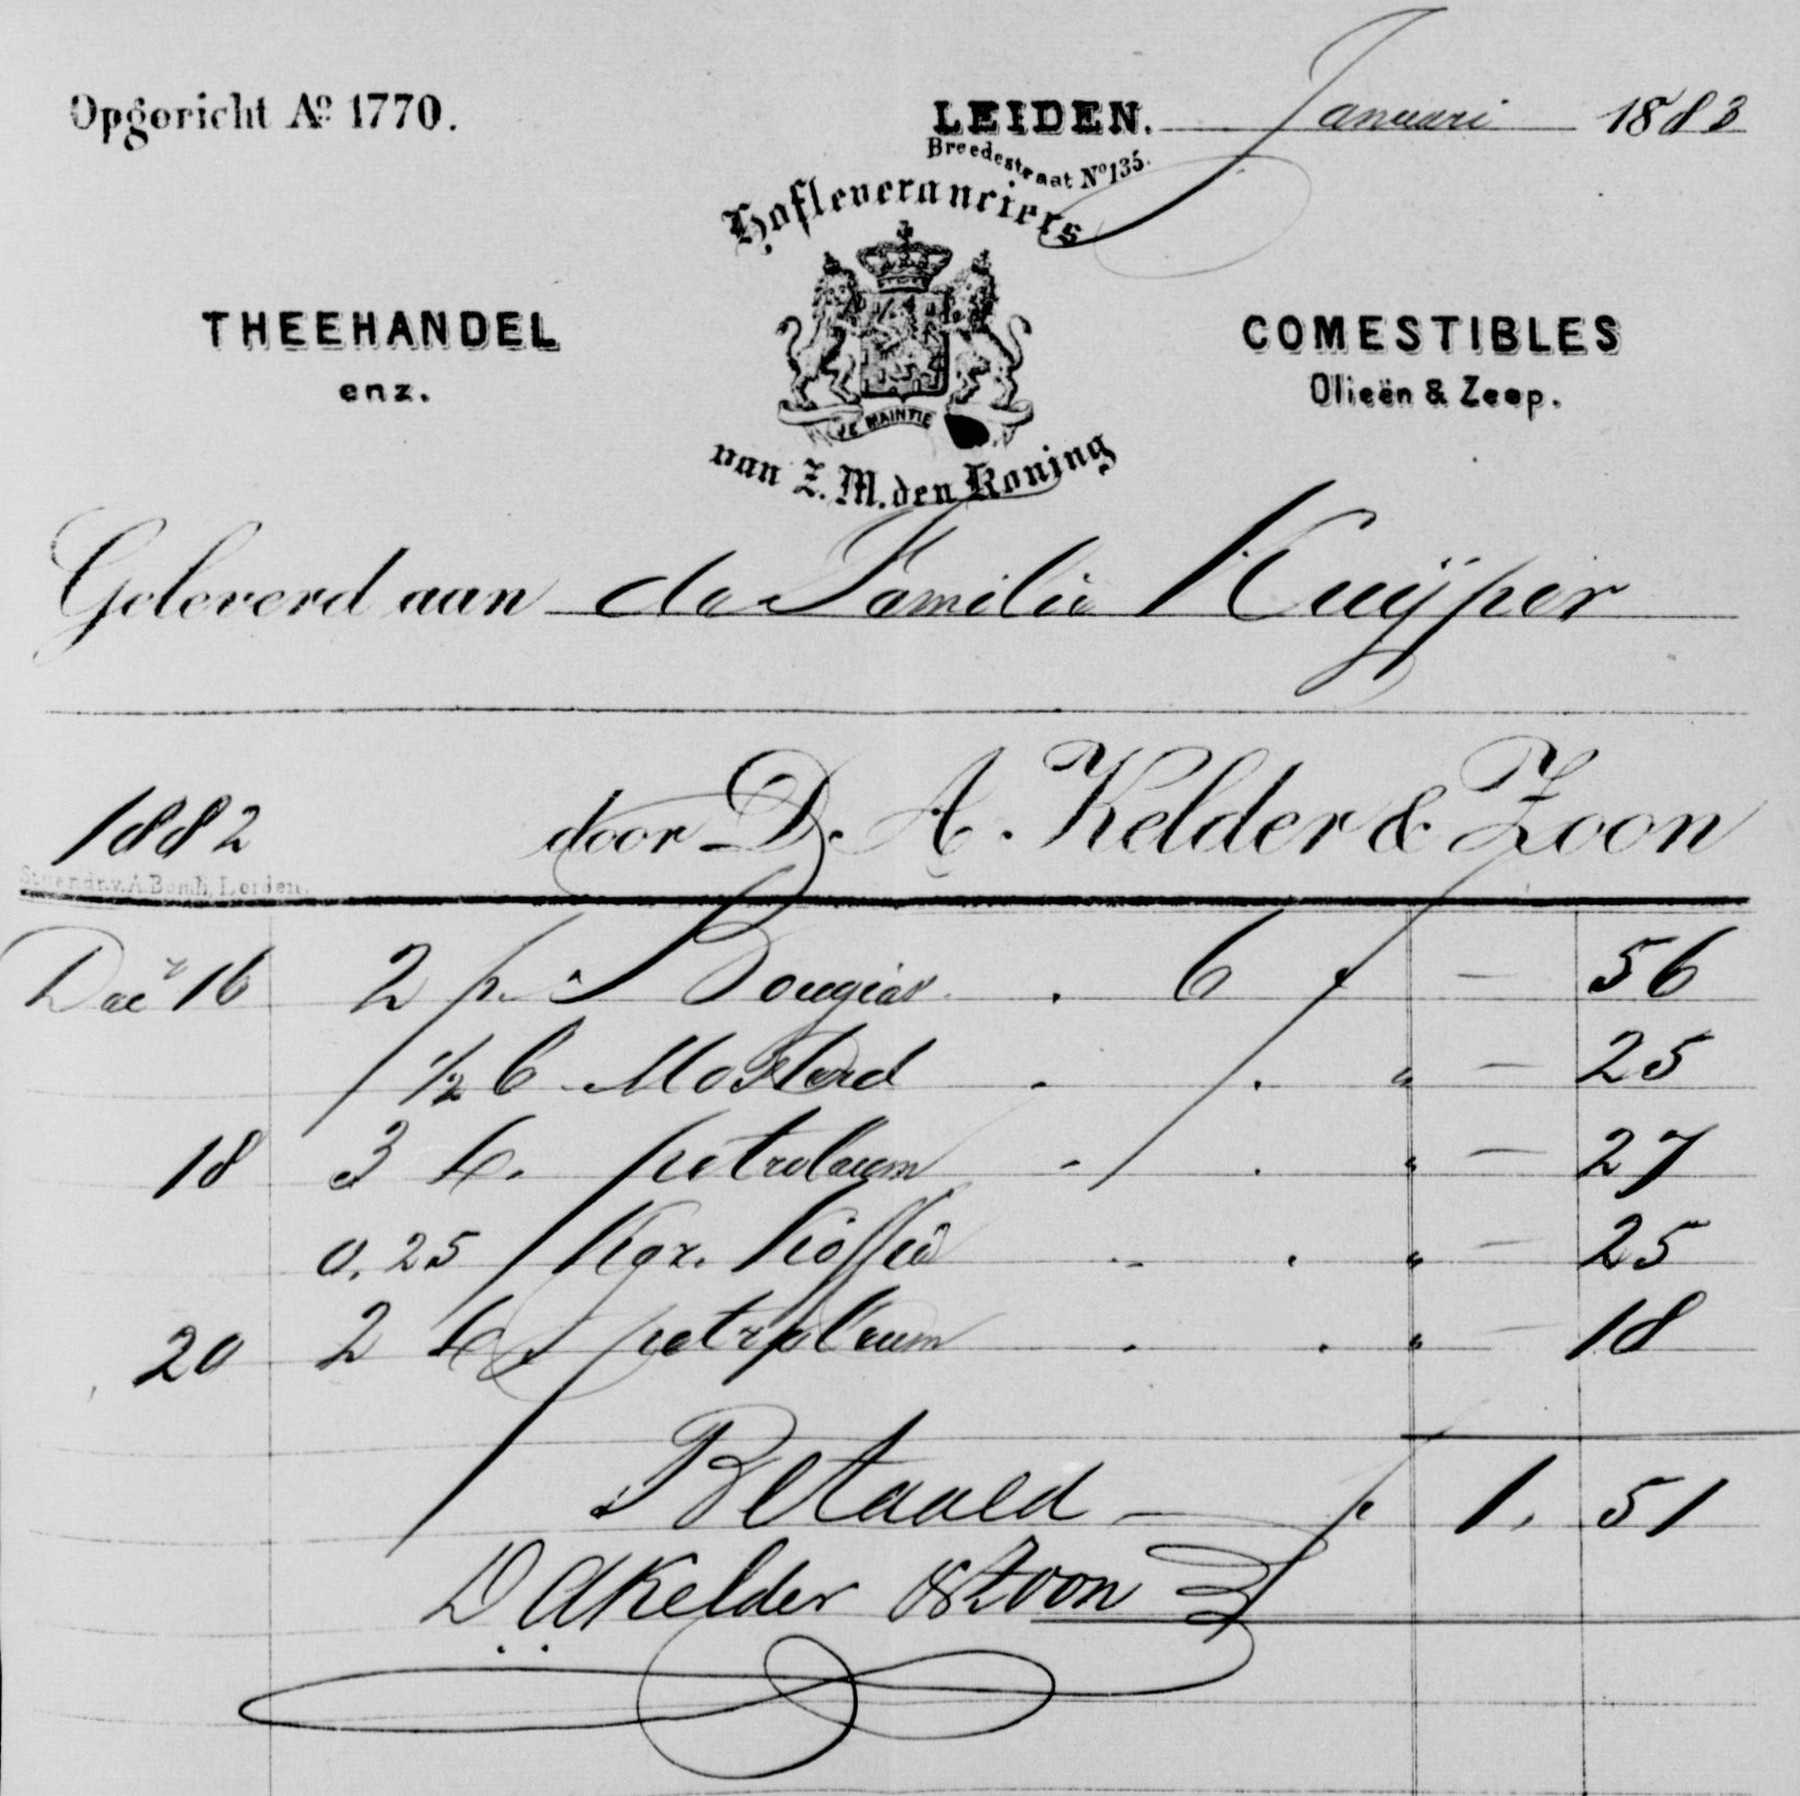 Opgericht Aº 1770.
LEIDEN. Januari 1883
Breedestraat Nº 135.
Hofleveranciers
THEEHANDEL
enz.
COMESTIBLES
Olieën & Zeep.
JE MAINTIE
van Z. M. den Koning
Geleverd aan de Familie Kuÿper
1882 door D. A. Kelder & Zoon
Steendr. v. A. Bomh, Leiden.
Decr 16 2 p. Bougies . 6 f — 56
1/2 b Mosterd . . " — 25
18 3 L. petroleum - . " — 27
0.25 Kgr. Koffie .. . " — 25
20 2 L. petroleum . . " — 18
Betaald — f 1. 51
D A Kelder & Zoon